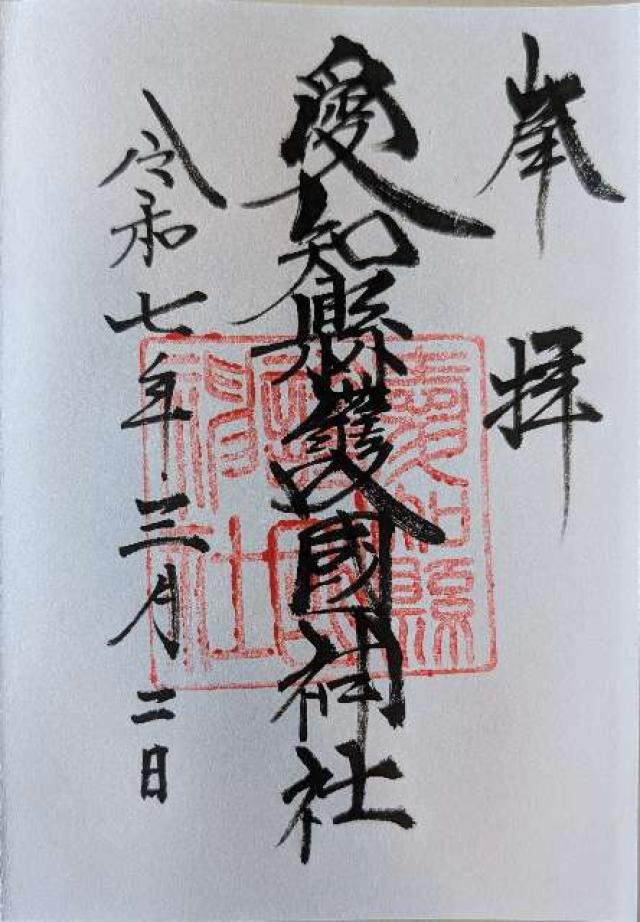 奉拝
愛知縣護國神社
愛知縣護國神社
令和七年三月二日